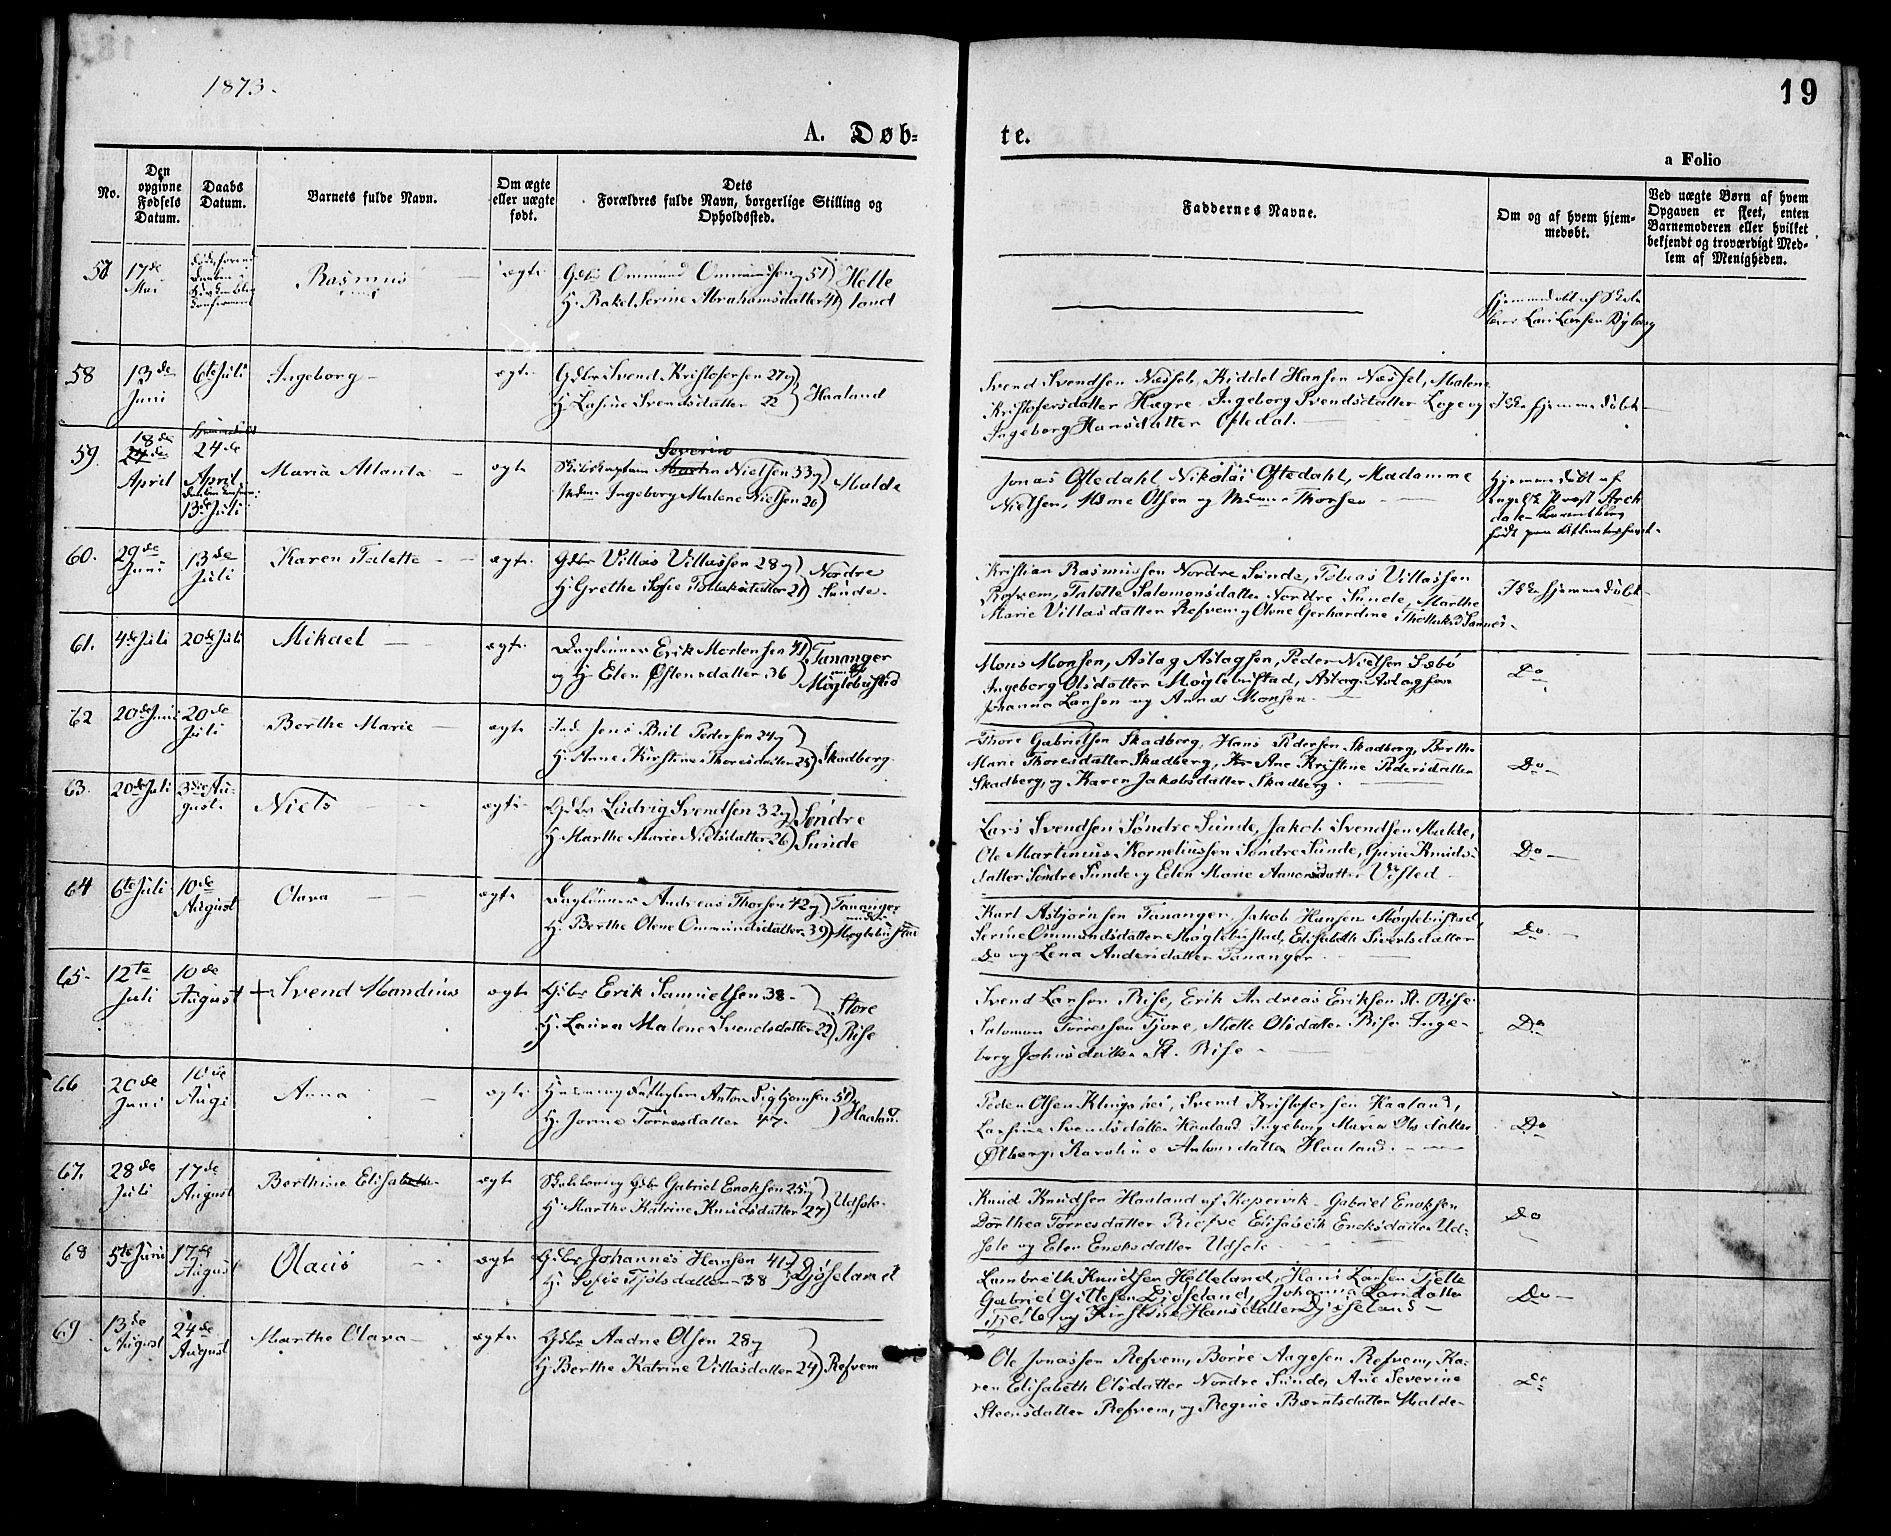 1873.
19
A. Døb-
te.
a Folio
No.
Den
opgivne
Fødsels
Datum.
Daabs
Datum.
Barnets fulde Navn.
Om ægte
eller uægte
født.
Dets
Forældres fulde Navn, borgerlige Stilling og
Opholdssted.
Faddernes Navne.
Om og af hvem hjem-
medøbt.
Ved uægte Børn af hvem
Opgaven er skeet, enten
Barnemoderen eller hvilket
bekjendt og troværdigt Med-
lem af Menigheden.
57
17de
Mai
Rasmus
ægte
Gdbr Ommund Ommundsen 51
H. Rakel Serine Abrahamsdatter 41
Helle
land
Hjemmedøbt af Skole
Lars Larsen
58
13de
Juni
6te Juli
Ingeborg
ægte
Gdbr Svend Kristofersen 27 og
H. Lasine Svendsdatter 22
Haaland
Svend Svendsen Næsset, Kiddel Hansen Næssel, Malene
Kristofersdatter Hægre, Ingeborg Svendsdatter og
Ingeborg Hansdatter Oftedal.
Ikke hjemmedøbt
59
18de
24de
April
Hjemmedøbt
24de
April
13de Juli
Maria Atlanta
ægte
Severin
Skibskaptein Martin Nielsen 33 og
Mdme Ingeborg Malene Nielsen 20
Malde
Jonas Oftedahl Nikolai Oftedahl, Madamme
Nielsen, Mdme Olsen og Mdme Thorsen
Hjemmedøbt af
Engelsk Præst
født paa Atlanterhavet
60.
29de
Juni
13de
Juli
Karen Talette
ægte
Gdbr Villas Villassen 28 og
H. Grethe Sofie 21
Nordre
Sunde.
Kristian Rasmussen Nordre Sunde, Tobias Villassen
Refvem, Talette Salomonsdatter Nordre Sunde, Marthe
Marie Villasdatter Refvem og Olene Gerhardine
Ikke hjemmedøbt
61.
4de Juli
20de Juli
Mikael
ægte
Daglønner Erik Mortensen 41
og H. Elen Østensdatter 36
Tananger
under
Møglebustad
Mons Monsen, Aslag Aslagsen, Peder Nielsen Sæbø
Ingeborg Olsdatter Møglebustad,
Johanna Larsen og Anna Monsen.
Do
62
20de Juni
20de
Juli
Berthe Marie
ægte
Jens Bul Pedersen 24 og
H. Anne Kirstine Thoresdatter 25
Skadberg
Thore Gabrielsen Skadberg, Hans Pedersen Skadberg, Berthe
Marie Thoresdatter Skadberg, Ane Kristine Pedersdatter
Skadberg, og Karen Jakobsdatter Skadberg.
Do
63.
20de Juli
3die Au-
gust.
Niels
ægte
Gdbr Ludvig Svendsen 32 og
H. Marthe Marie Nielsdatter 26
Søndre
Sunde
Lars Svendsen Søndre Sunde, Jakob Svendsen Malde,
Ole Martinius Korneliussen Søndre Sunde, Gurie Knuds-
datter Søndre Sunde og Elen Marie Visted
Do
64
6te Juli
10de
August
Clara
ægte
Daglønner Andreas Thorsen 42 og
H. Berthe Olene Ommundsdatter 39
Tananger
under
Møglebustad
Karl Asbjørnsen Tananger, Jakob Hansen Møglebustad,
Serine Ommundsdatter Møglebustad, Elisabeth Sivertsdatter
Do og Lena Andersdatter Tananger
Do
65.
12te
Juli
10de
August
Svend Mandius
ægte
Gdbr Erik Samuelsen 38
H. Laura Malene Svendsdatter 22
Store
Rise
Svend Larsen Rise, Erik Andreas Eriksen St. Rise
Salomon Torressen Tjore, Mette Olsdatter Rise Inge-
borg Johnsdatter St. Rise
Do
66
20de
Juni
10de
Aug
Anna
ægte
Anton Sigbjørnsen 51 og
H. Jorine Torresdatter 47.
Haaland
Peder Olsen Klingshei, Svend Kristofersen Haaland,
Lasine Svendsdatter Haaland Ingeborg Maria Olsdatter
Ølberg, Karoline Antonsdatter Haaland.
Do
67.
28de
Juli
17de
August
Berthine Elisabeth
ægte
Gabriel Enoksen 25 og
H. Marthe Katrine Knudsdatter 27
Udsole
Knud Knudsen Haaland af Kopervik Gabriel Enoksen
Dorthea Torresdatter Elisabeth Enoksdatter Ud-
sole og Elen Enoksdatter Udsole
Do
68
5te Juni
17de
August
Olaus
ægte
Gdbr Johannes Hansen 41
H. Sofie 38
Ljøseland
Lambreth Knudsen Helleland, Hans Larsen
Gabriel Gittesen Ljøseland, Johanna Larsdatter
og Kirstine Hansdatter Ljøseland
Do
69
13de
August
24de
August
Marthe Clara
ægte
Gdbr Aadne Olsen 28 og
H. Berthe Katrine Villasdatter 24
Refvem
Ole Jonassen Refvem, Børre Aagesen Refvem, Ka-
ren Elisabeth Olsdatter Nordre Sunde, Ane Severine
Steensdatter Refvem, og Regine Berntsdatter Malde
Do